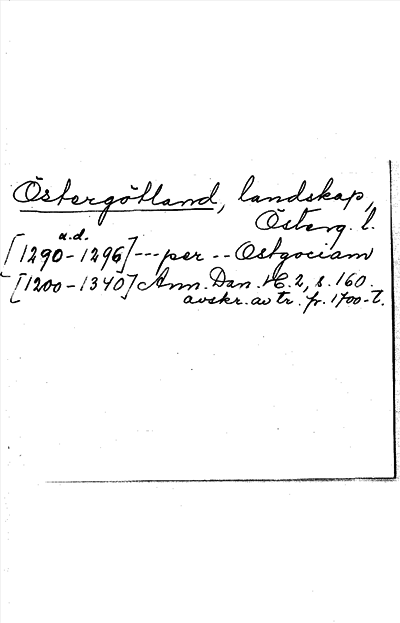 Östergötland, landskap,
Österg. l.
a.d.
[1290-1296] --- per -- Ostgociam
[1200-1340] Ann. Dan. H. 2, s. 160.
avskr. av tr. fr. 1700-t.